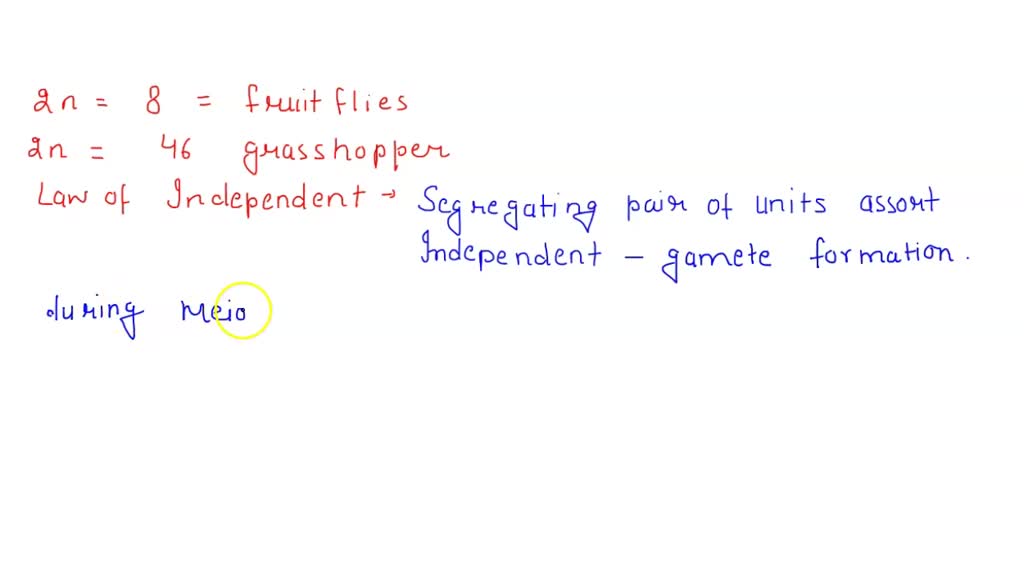 2n = 8 = fruit flies
2n = 46 grasshopper
Law of Independent → Segregating pair of units assort
Independent - gamete formation.
during meio